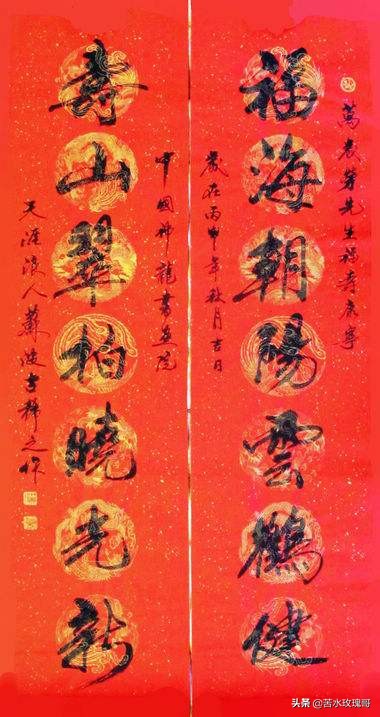 萬長芽先生福壽康寧
福海朝陽雲鶴健
歲在丙申年秋月吉日
中國神龍書畫院
壽山翠柏曉光新
天涯浪人蕭波書穉之作
头条 @苦水玫瑰哥